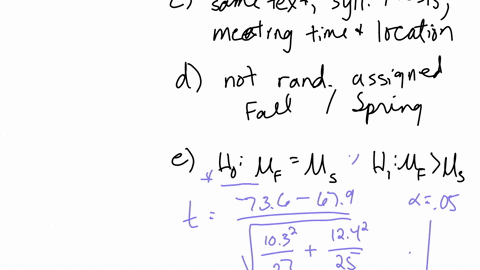 c) same text, syll.
meeting time + location
d) not rand. assigned
Fall / Spring
e) H₀: μ_F = μ_S ; H₁: μ_F > μ_S
t = 73.6 - 67.9 α = .05
10.3² + 12.4²
27 25